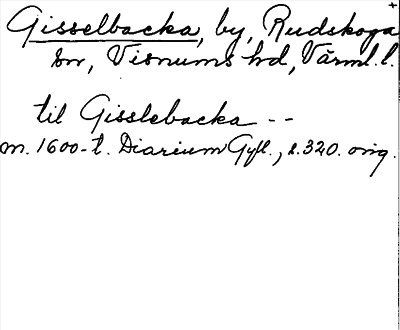 Gisselbacka, by, Rudskoga
sn, Visnums hd, Värml. l.
til Gisslebacka --
m. 1600-t. Diarium Gyll., s. 320. orig.